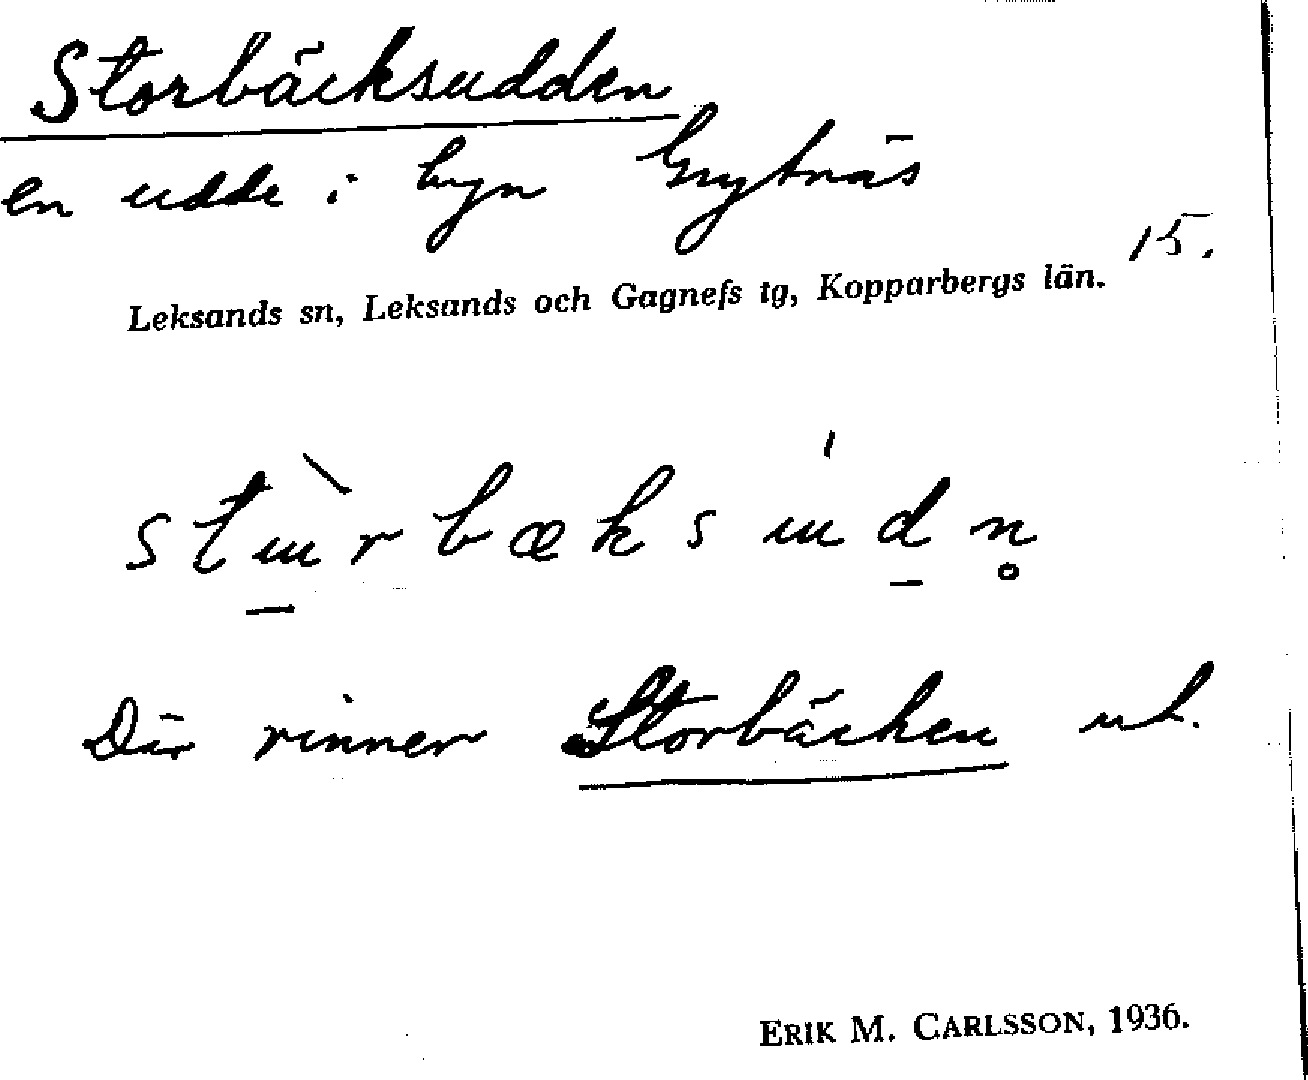 Storbäcksudden
en udde i byn Grytnäs
15.
Leksands sn, Leksands och Gagnefs tg, Kopparbergs län.
stɯ̠̀rbæksɯ́d̠n̥
Där rinner Storbäcken ut.
ERIK M. CARLSSON, 1936.